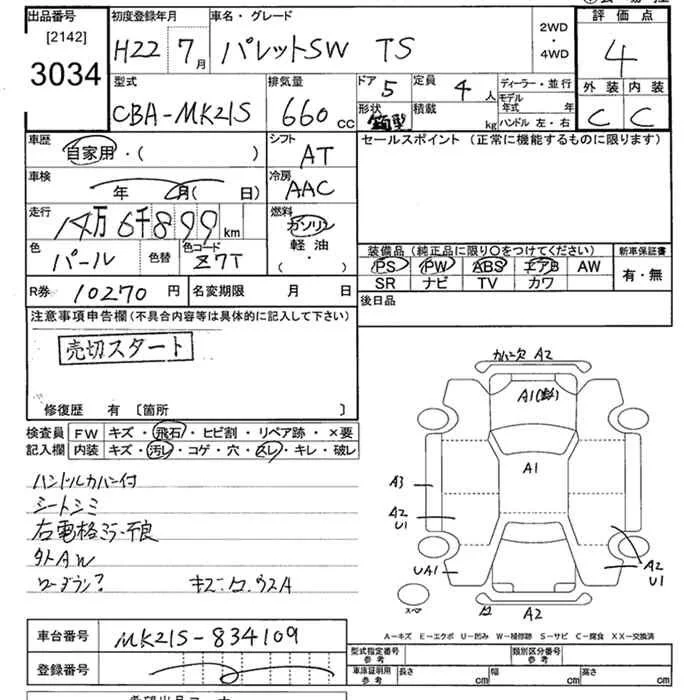 出品番号
[2142]
3034
初度登録年月
H22 7月
車名・グレード
パレットSW TS
2WD
・
4WD
評価点
4
外装 内装
C C
型式
CBA-MK21S
排気量
660 cc
ドア 5
定員 4 人
形状 箱型
積載 kg
ディーラー・並行
モデル年式 年
ハンドル 左・右
車歴
自家用・( )
シフト
AT
セールスポイント (正常に機能するものに限ります)
車検
年 月( 日)
冷房
AAC
走行
14万6千899km
燃料
ガソリン
軽油
・
( )
色
パール
色替
色コード
Z7T
装備品 (純正品に限り○をつけてください)
PS PW ABS エアB AW
SR ナビ TV カワ
新車保証書
有・無
R券 10270 円
名変期限 月 日
後日品
注意事項申告欄(不具合内容等は具体的に記入して下さい)
売切スタート
修復歴 有 〔箇所 〕
検査員 FW キズ・飛石・ヒビ割・リペア跡・×要
記入欄 内装 キズ・汚レ・コゲ・穴・スレ・キレ・破レ
ハンドルカバー付
シートシミ
右電格ミラー不良
外AW
キズ・凹・ウスA
カバー欠 A2
A1
A1
A3
A2
U1
UA1
A2
U1
A2
スペア
A-キズ E-エクボ U-凹み W-補修跡 S-サビ C-腐食 XX-交換済
車台番号 MK21S-834109
登録番号
型式指定番号
参考
類別区分番号
参考
車庫証明用
参考
長さ cm
幅 cm
高さ cm